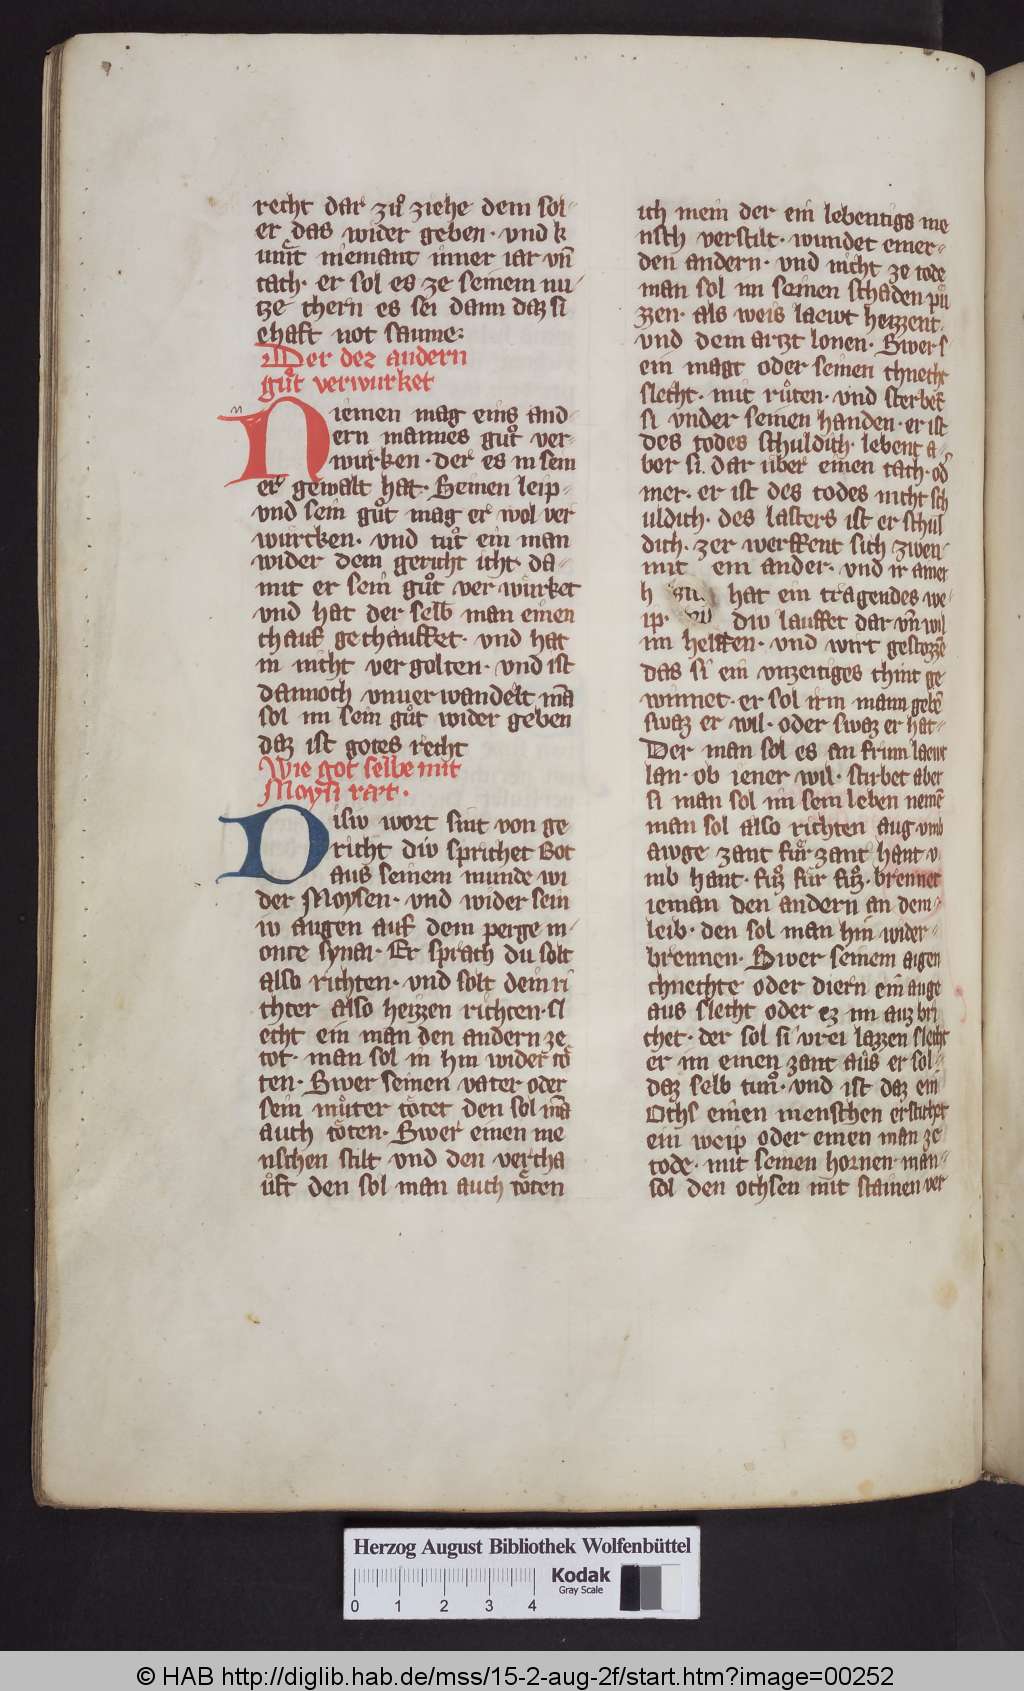 recht dar zuͦ ziehe dem sol-
er das wider geben · vnd k
umt niemant inner iar vn̄
tach · er sol es ze seinem nu-
tze chern es sei dann daz si
ehaft not saume :
Der dez andern
guͦt verwurket
Niemen mag eins and-
ern mannes guͦt ver-
wurken · der es in sein
er gewalt hat · Seinen leip-
vnd sein guͦt mag er wol ver
wurcken · vnd tuͦt ein man
wider dem gericht icht · da-
mit er sein guͦt ver wurket
vnd hat der selb man einen
chauf gechauffet · vnd hat
in nicht ver golten · vnd ist
dannoch vnuer wandelt mā
sol im sein guͦt wider geben
daz ist gotes recht
Wie got selbe mit
Moysi ret ·
Disiv wort sint von ge
richt div sprichet Got
aus seinem munde wi
der Moysen · vnd wider sein
iv augen auf dem perge m-
onte synai · Er sprach du solt
also richten · vnd solt dein ri
chter also heizzen richten · sl
echt ein man den andern ze
tot · man sol in hin wider toͤ
ten · Swer seinen vater oder
sein muͦter toͤtet den sol mā
auch toͤten · Swer einen me
nschen stilt vnd den vercha
uft den sol man auch toͤten
ich mein der ein lebentigs me
nsch verstilt · wundet einer-
den andern · vnd nicht ze tode
man sol im seinen schaden puͤ
zzen · als weis laewt heizzent ·
vnd dem artzt lonen · Swer s
ein magt oder seinen chnecht
slecht · mit ruͦten · vnd sterbet
si vnder seinen handen · er ist
des todes schuldich · lebent a-
ber si dar uber einen tach · od
mer · er ist des todes nicht sch
uldich · des lasters ist er schul
dich · zer werffent sich zwen-
mit ein ander · vnd ir ainer
h hat ein tragendes we-
ip · div lauffet dar vn̄ wil
im helffen · vnd wirt gestozzē
das si ein vnzeitiges chint ge
winnet · er sol irm mann gebē
swaz er wil · oder swaz er hat-
Der man sol es an frum laewt
lan · ob iener wil · stirbet aber
si man sol im sein leben nemē
man sol also richten aug vmb
awge zant fur zant hant v
mb hant · fuz fur fuz · brennet
ieman den andern an dem-
leib · den sol man hin wider-
brennen · Swer seinem aigen
chnechte oder diern ein auge
aus slecht oder ez im auz bri
chet · der sol si vrei lazzen slecht
er im einen zant aus er sol-
daz selb tuͦn · vnd ist daz ein
Ochs einen menschen erstichet
ein weip oder einen man ze
tode · mit seinen hornen · man-
sol den ochsen mit stainen ver
Herzog August Bibliothek Wolfenbüttel
Kodak
Gray Scale
0 1 2 3 4
© HAB http://diglib.hab.de/mss/15-2-aug-2f/start.htm?image=00252